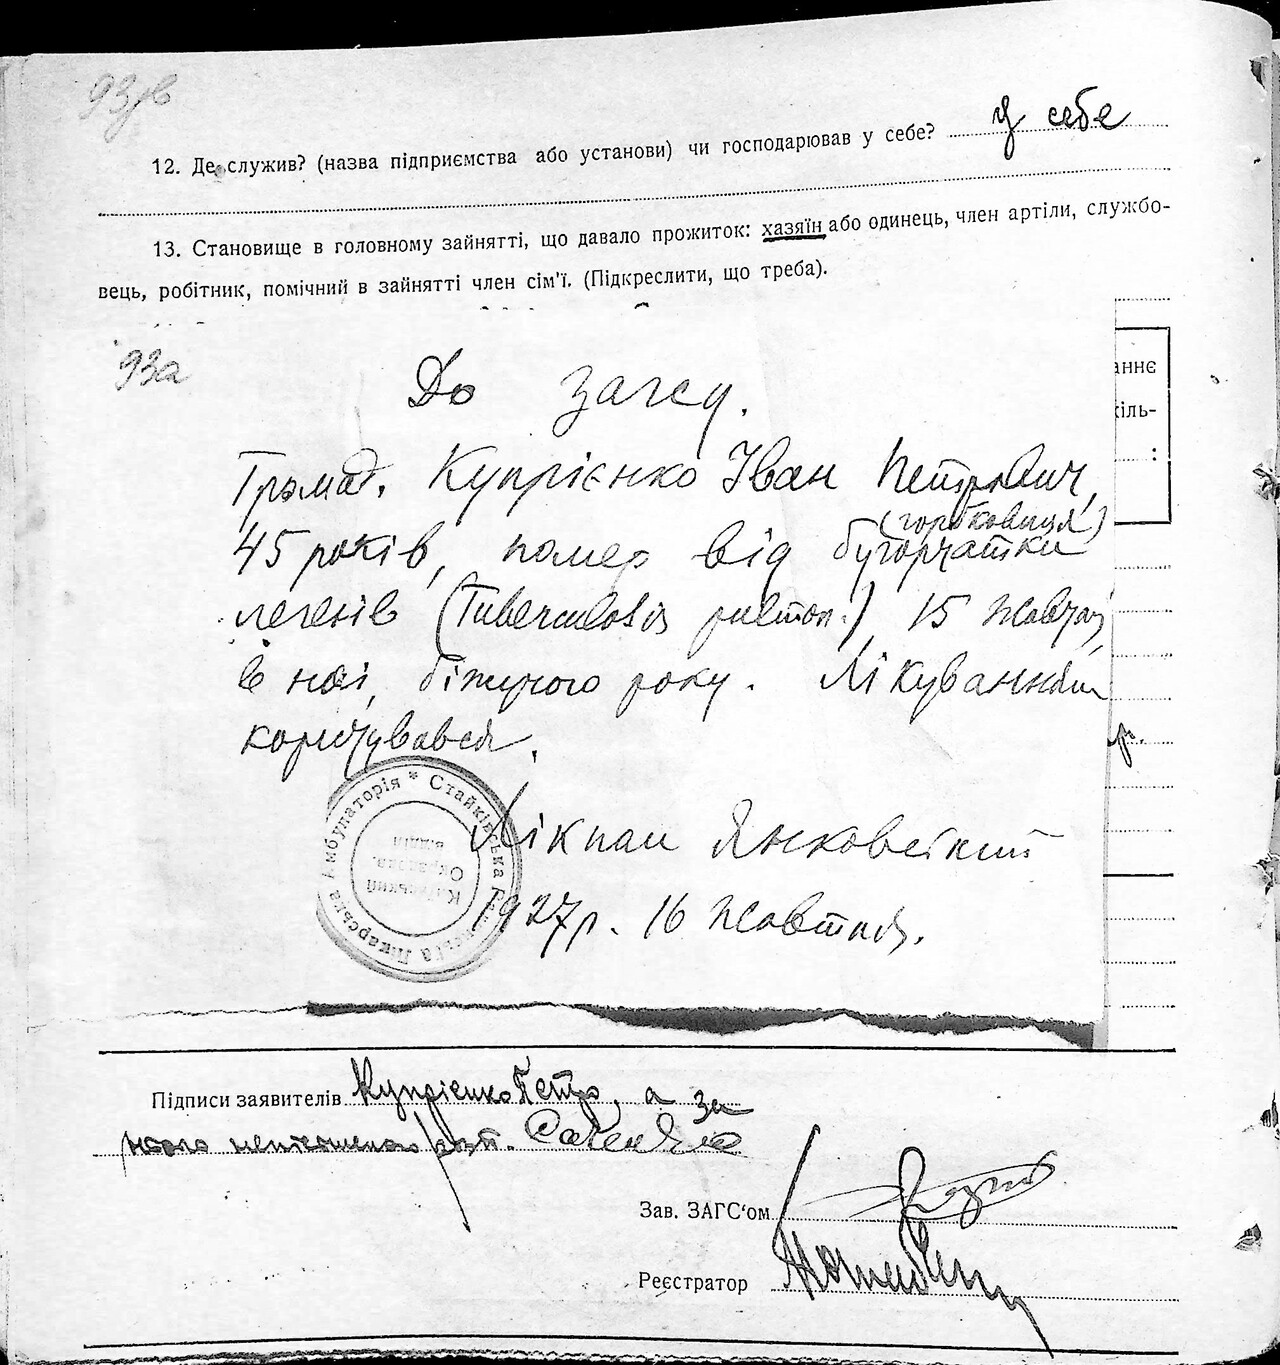 93зв
12. Де служив? (назва підприємства або установи) чи господарював у себе? у себе
13. Становище в головному зайнятті, що давало прожиток: хазяїн або одинець, член артіли, службо-
вець, робітник, помічний в зайнятті член сім'ї. (Підкреслити, що треба).
93а
До загсу.
Громад. Купрієнко Іван Петрович,
45 років, помер від бугорчатки
легенів (Tuberculosis pulmon.) 15 жовтня
в ночі, біжучого року. Лікуванням
користувався.
Лікпам Янковський
1927 р. 16 жовтня.
Стайківська
Лікарська Амбулаторія *
Київський
Окрздрав.
відділ
аннє
кіль-
:
Підписи заявителів Купрієнко Петро, а за
нього неписьменого розп.
Зав. ЗАГС'ом
Реєстратор